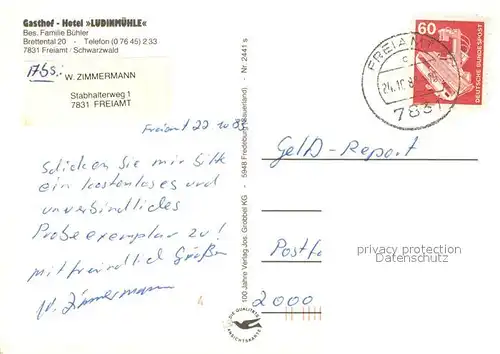 Gasthof - Hotel »LUDINMÜHLE«
Bes. Familie Bühler
Brettental 20 - Telefon (0 76 45) 2 33
7831 Freiamt / Schwarzwald
Abs.:
W. ZIMMERMANN
Stabhalterweg 1
7831 FREIAMT
Freiamt 22.10.83
Schicken Sie mir bitte
ein kostenloses und
unverbindliches
Probeexemplar zu!
Mit freundlich Grüßen
W. Zimmermann
100 Jahre Verlag Jos. Grobbel KG - 5948 Fredeburg (Sauerland) - Nr. 2441 s
DIE QUALITÄTS
ANSICHTSKARTE
FREIAMT
c
24.10.8
7831
60
DEUTSCHE BUNDESPOST
Geld-Report
Postf
2000
privacy protection
Datenschutz